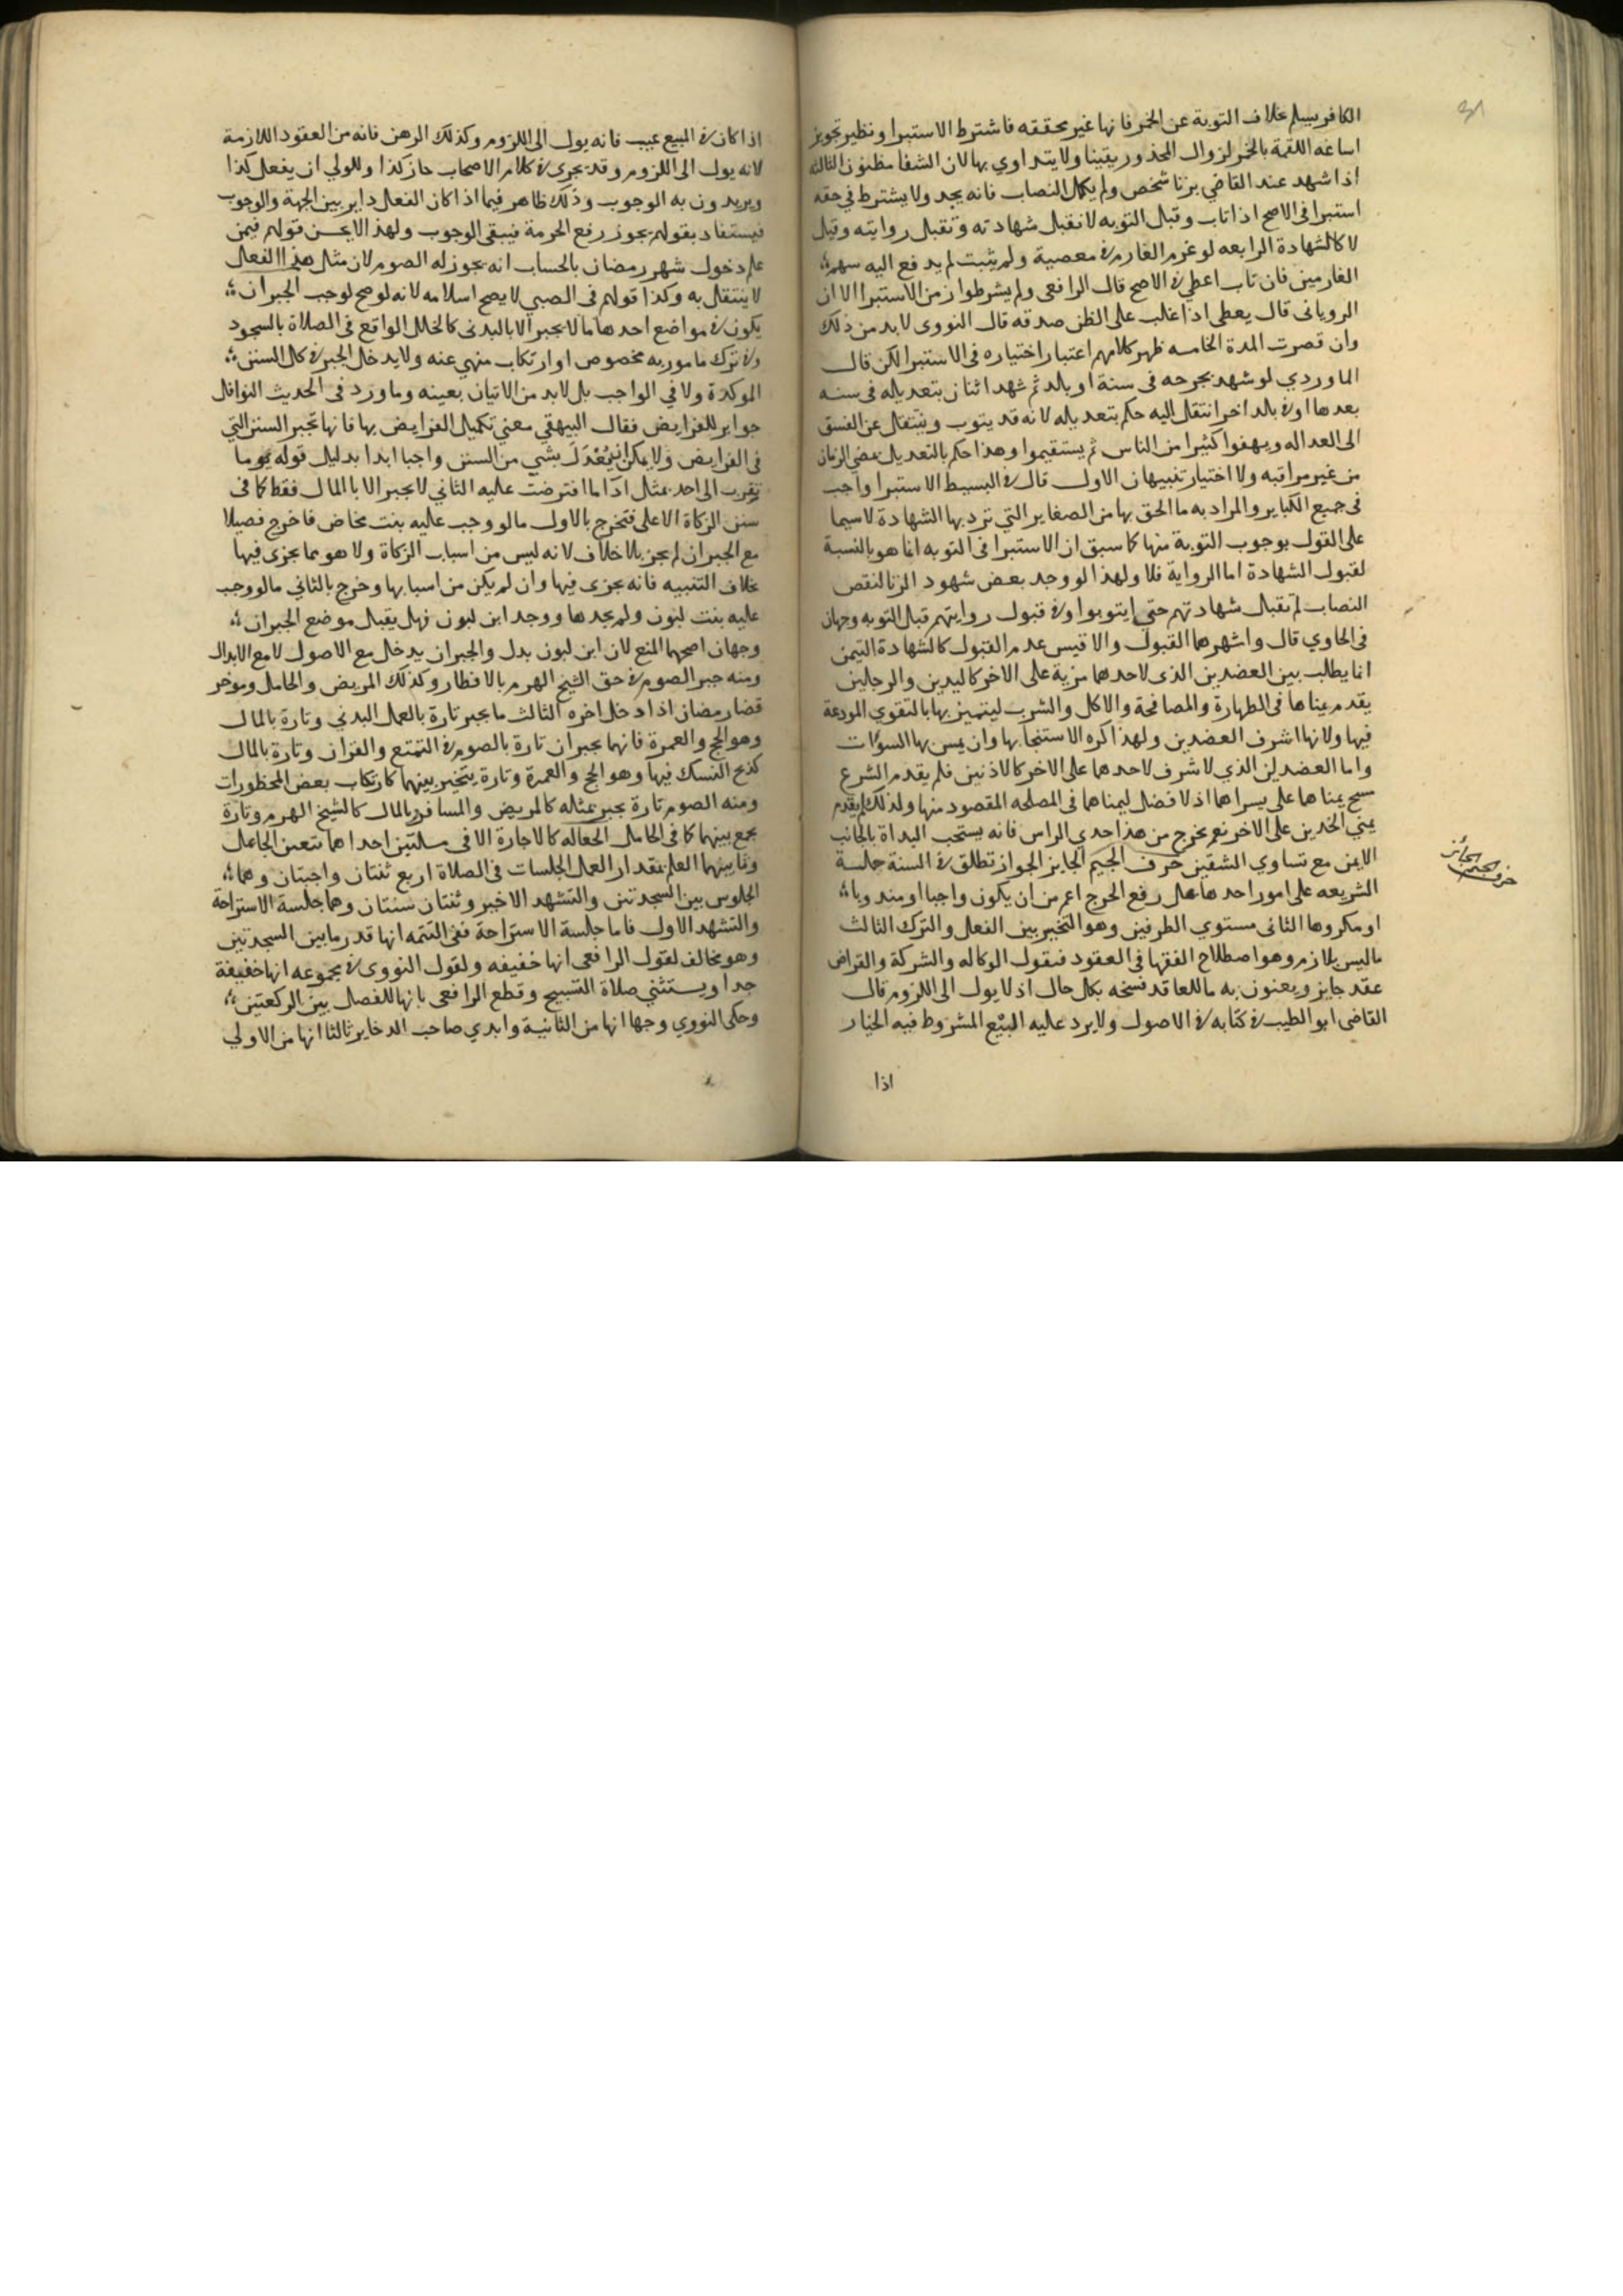 الكافر يسلم بخلاف التوبة عن الخمر فانها غير محققه فاشترط الاستبرا ونظير تجويز
اساغه اللقمة بالخمر لزوال المحذور يقينا ولا يتداوي بها لان الشفا مظنون الثالثه
اذا شهد عند القاضي بزنا شخص ولم يكمل النصاب فانه يحد ولا يشترط في حقه
استبرا في الاصح اذا تاب وقبل التوبه لا تقبل شهادته وتقبل روايته وقيل
لا كالشهادة الرابعه لو غرم الغارم في معصية ولم يثبت لم يدفع اليه سهم
الغارمين فان تاب اعطي في الاصح قال الرافعي ولم يشرطوا زمن الاستبرا الا ان
الروياني قال يعطي اذا غلب على الظن صدقه قال النووي لا بد من ذلك
وان قصرت المدة الخامسه ظهر كلامهم اعتبار اختياره في الاستبرا لكن قال
الماوردي لو شهد بجرحه في سنة او بلد ثم شهد اثنان بتعديله في سنه
بعدها او في بلد اخر انتقل اليه حكم بتعديله لانه قد يتوب وينتقل عن الفسق
الى العداله ويهفوا كثيرا من الناس ثم يستقيموا وهذا حكم بالتعديل بمضي الزمان
من غير مراقبه ولا اختيار تنبيهان الاول قال في البسيط الاستبرا واجب
في جميع الكباير والمراد به ما الحق بها من الصغاير التي ترد بها الشهادة لا سيما
على القول بوجوب التوبة منها كما سبق ان الاستبرا في التوبه انما هو بالنسبة
لقبول الشهادة اما الرواية فلا ولهذا لو وجد بعض شهود الزنا لنقص
النصاب لم تقبل شهادتهم حتي يتوبوا وفي قبول روايتهم قبل التوبه وجهان
في الحاوي قال واشهرهما القبول والاقيس عدم القبول كالشهادة التيمن
انما يطلب بين العضدين الذي لاحدهما مزية على الاخر كاليدين والرجلين
يقدم يمناها في الطهارة والمصافحة والاكل والشرب ليتميز بها بالتقوي المودعة
فيها ولانها اشرف العضدين ولهذا كره الاستنجا بها وان يمس بها السوءات
واما العضدين الذي لا شرف لاحدهما على الاخر كالاذنين فلم يقدم الشرع
مسح يمناهما على يسراهما اذ لا فضل ليمناهما في المصلحه المقصود منها ولذلك لم يقدم
يمني الخدين على الاخر نعم يخرج من هذا احدي الراس فانه يستحب البداة بالجانب
الايمن مع تساوي الشقين حرف الجيم الجايز الجواز تطلق في السنة حملة
الشريعه على امور احدها على رفع الحرج اعم من ان يكون واجبا او مندوبا
او مكروها الثاني مستوي الطرفين وهو التخيير بين الفعل والترك الثالث
ما ليس بلازم وهو اصطلاح الفقها في العقود فيقول الوكاله والشركة والقراض
عقد جايز ويعنون به ما للعاقد فسخه بكل حال اذ لا يول الى اللزوم قال
القاضي ابو الطيب في كتابه في الاصول ولا يرد عليه البيع المشروط فيه الخيار
اذا
حرف الجيم الجائز
اذا كان في المبيع عيب فانه يول الى اللزوم وكذلك الرهن فانه من العقود اللازمة
لانه يول الى اللزوم وقد يجري في كلام الاصحاب جاز كذا وللولي ان يفعل كذا
ويريدون به الوجوب وذلك ظاهر فيما اذا كان الفعل داير بين الجهة والوجوب
فيستفاد بقولهم يجوز رفع الحرمة فيبقي الوجوب ولهذا لا يحسن قولهم فيمن
علم دخول شهر رمضان بالحساب انه يجوز له الصوم لان مثل هذا الفعل
لا ينتقل به وكذا قولهم في الصبي لا يصح اسلامه لانه لو صح لوجب الجبران
يكون في مواضع احدها ما لا يجبر الا بالبدني كالخلل الواقع في الصلاة بالسجود
وفي ترك مامور به مخصوص او ارتكاب منهي عنه ولا يدخل الجبر في كل السنن
الموكدة ولا في الواجب بل لا بد من الاتيان بعينه وما ورد في الحديث النوافل
جوابر للفرايض فقال البيهقي معني تكميل الفرايض بها فانها تجبر السنن التي
في الفرايض ولا يمكن ان يعدل بشي من السنن واجبا ابدا بدليل قوله وما
تقرب الى احد بمثل اداما افترضت عليه الثاني لا يجبر الا بالمال فقط كما في
سنن الزكاة الاعلى فتخرج بالاول ما لو وجب عليه بنت مخاض فاخرج فصيلا
مع الجبران لم يجز بلا خلاف لانه ليس من اسباب الزكاة ولا هو مما يجزي فيها
بخلاف التنبيه فانه يجزي فيها وان لم يكن من اسبابها وخرج بالثاني ما لو وجب
عليه بنت لبون ولم يجدها ووجد ابن لبون فهل يقبل موضع الجبران
وجهان اصحهما المنع لان ابن لبون بدل والجبران يدخل مع الاصول لا مع الابدال
ومنه جبر الصوم في حق الشيخ الهرم بالافطار وكذلك المريض والحامل وموخر
قضا رمضان اذا دخل اخره الثالث ما يجبر تارة بالعمل البدني وتارة بالمال
وهو الحج والعمرة فانهما يجبران تارة بالصوم في التمتع والقران وتارة بالمال
كذبح النسك فيها وهو الحج والعمرة وتارة يتخير بينهما كارتكاب بعض المحظورات
ومنه الصوم تارة يجبر بمثله كالمريض والمسافر وبالمال كالشيخ الهرم وتارة
يجمع بينهما كما في الحامل الجعاله كالاجارة الا في مسلتين احداهما تتعين الجاعل
وثانيهما العلم بمقدار العمل الجلسات في الصلاة اربع ثنتان واجبتان وهما
الجلوس بين السجدتين والتشهد الاخير وثنتان سنتان وهما جلسة الاستراحة
والتشهد الاول فاما جلسة الاستراحة ففي التتمه انها قدر ما بين السجدتين
وهو مخالف لقول الرافعي انها خفيفه ولقول النووي في مجموعه انها خفيفة
جدا ويستثني صلاة التسبيح وقطع الرافعي بانها للفصل بين الركعتين
وحكي النووي وجها انها من الثانية وابدي صاحب الدخاير ثالثا انها من الاولي